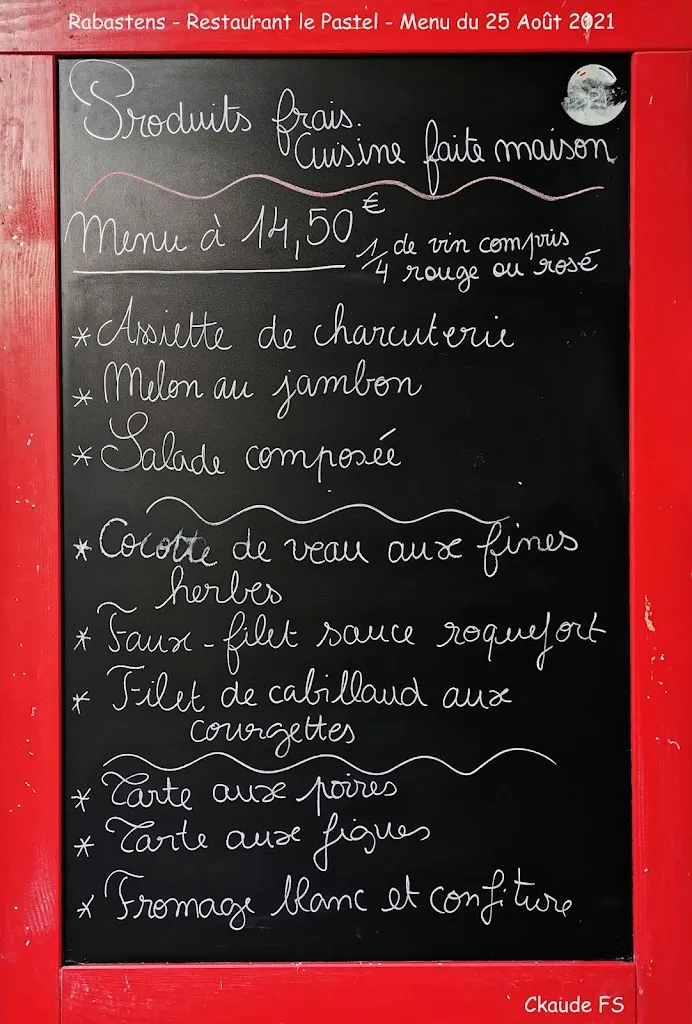 Rabastens - Restaurant le Pastel - Menu du 25 Août 2021
Produits frais.
Cuisine faite maison
Menu à 14,50 €
1/4 de vin compris
rouge ou rosé
* Assiette de charcuterie
* Melon au jambon
* Salade composée
* Cocotte de veau aux fines
herbes
* Faux-filet sauce roquefort
* Filet de cabillaud aux
courgettes
* Tarte aux poires
* Tarte aux figues
* Fromage blanc et confiture
Ckaude FS